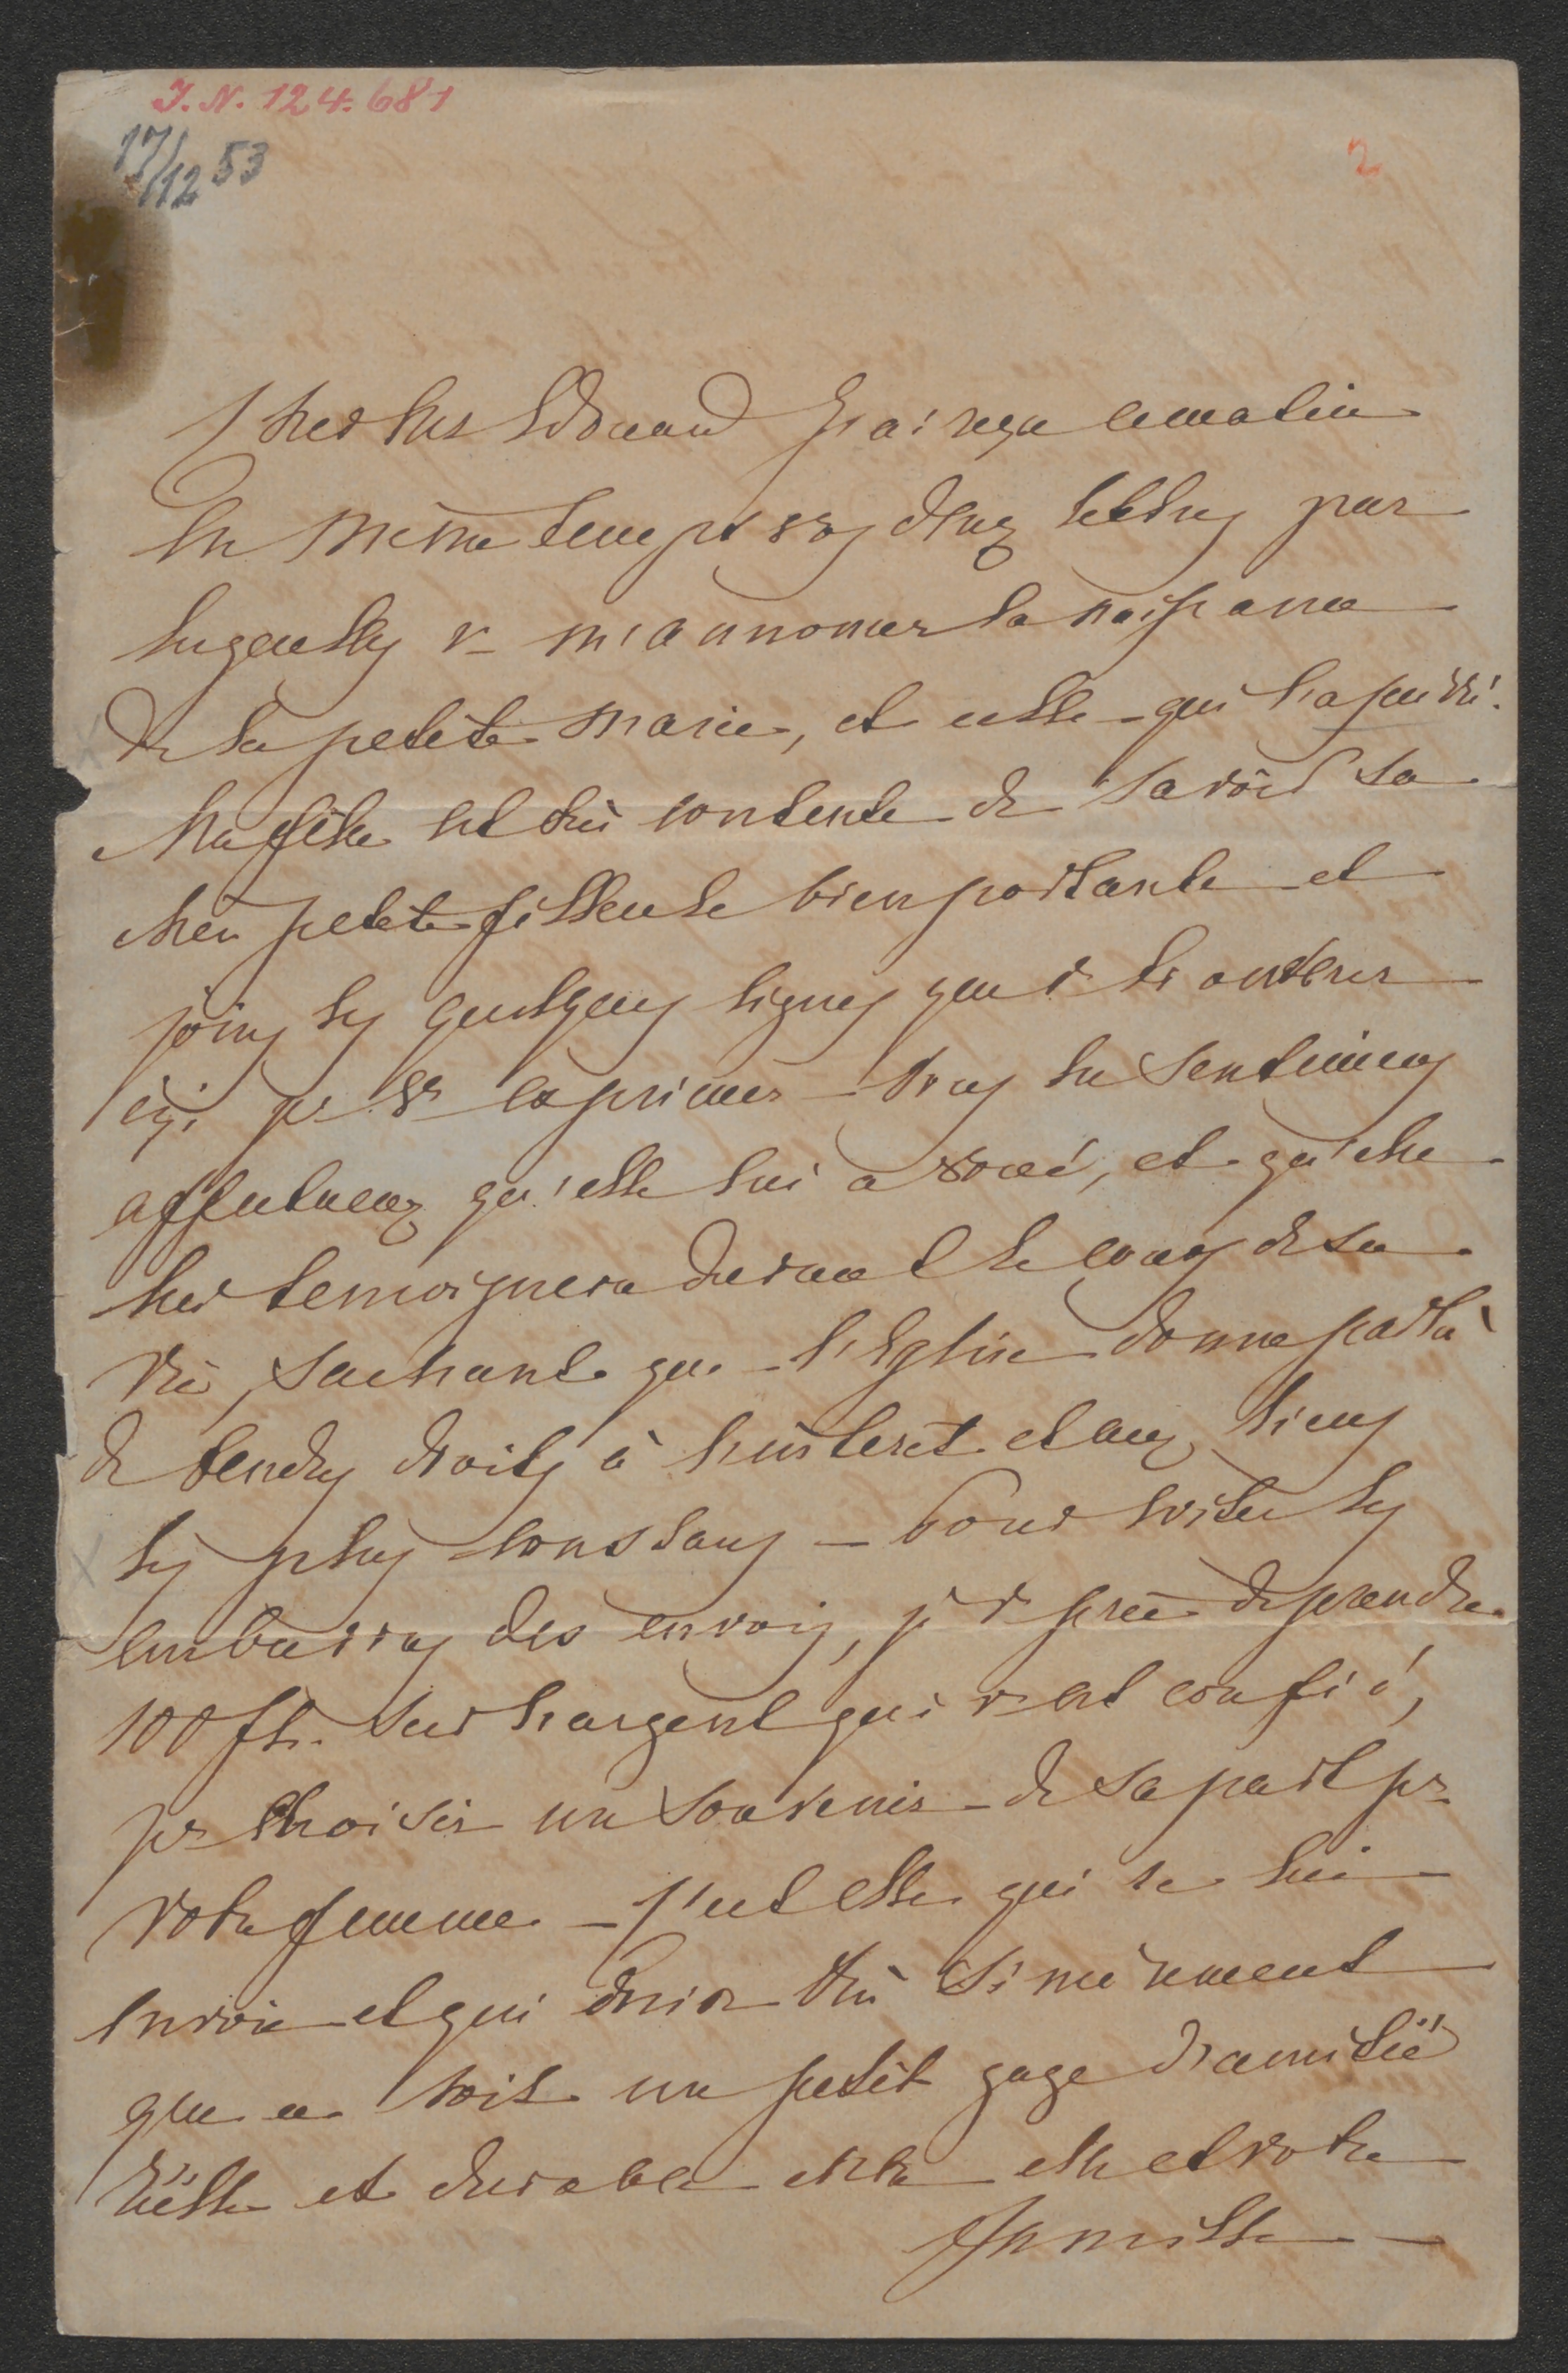 I. N. 124.681
17/12 53
2
Cher Edouard J'ai reçu ce matin
en même temps vos deux lettres par
lesquelles v. m'annoncez la naissance
de la petite Marie, et celle qui l'a
Ma fille est très contente de savoir sa
chère petite filleule bien portante et
joins les quelques lignes que
ici pr v. exprimer tous les sentimens
affectueux qu'elle lui a voué, et qu'elle
lui temoignera durant le cours de sa
vie, sachant que l'Eglise donne par là
de tendres droits à l'intérêt et aux liens
les plus constans – Pour eviter les
embarras des envois, je v. prie de prendre
100 fl. sur l'argent qui v. est confié,
pr choisir un souvenir de sa part pr
votre femme – c'est elle qui le lui
envoie et qui desire très sincèrement
que ce soit un petit gage d'amitié
réelle et durable entre elle et votre
famille –